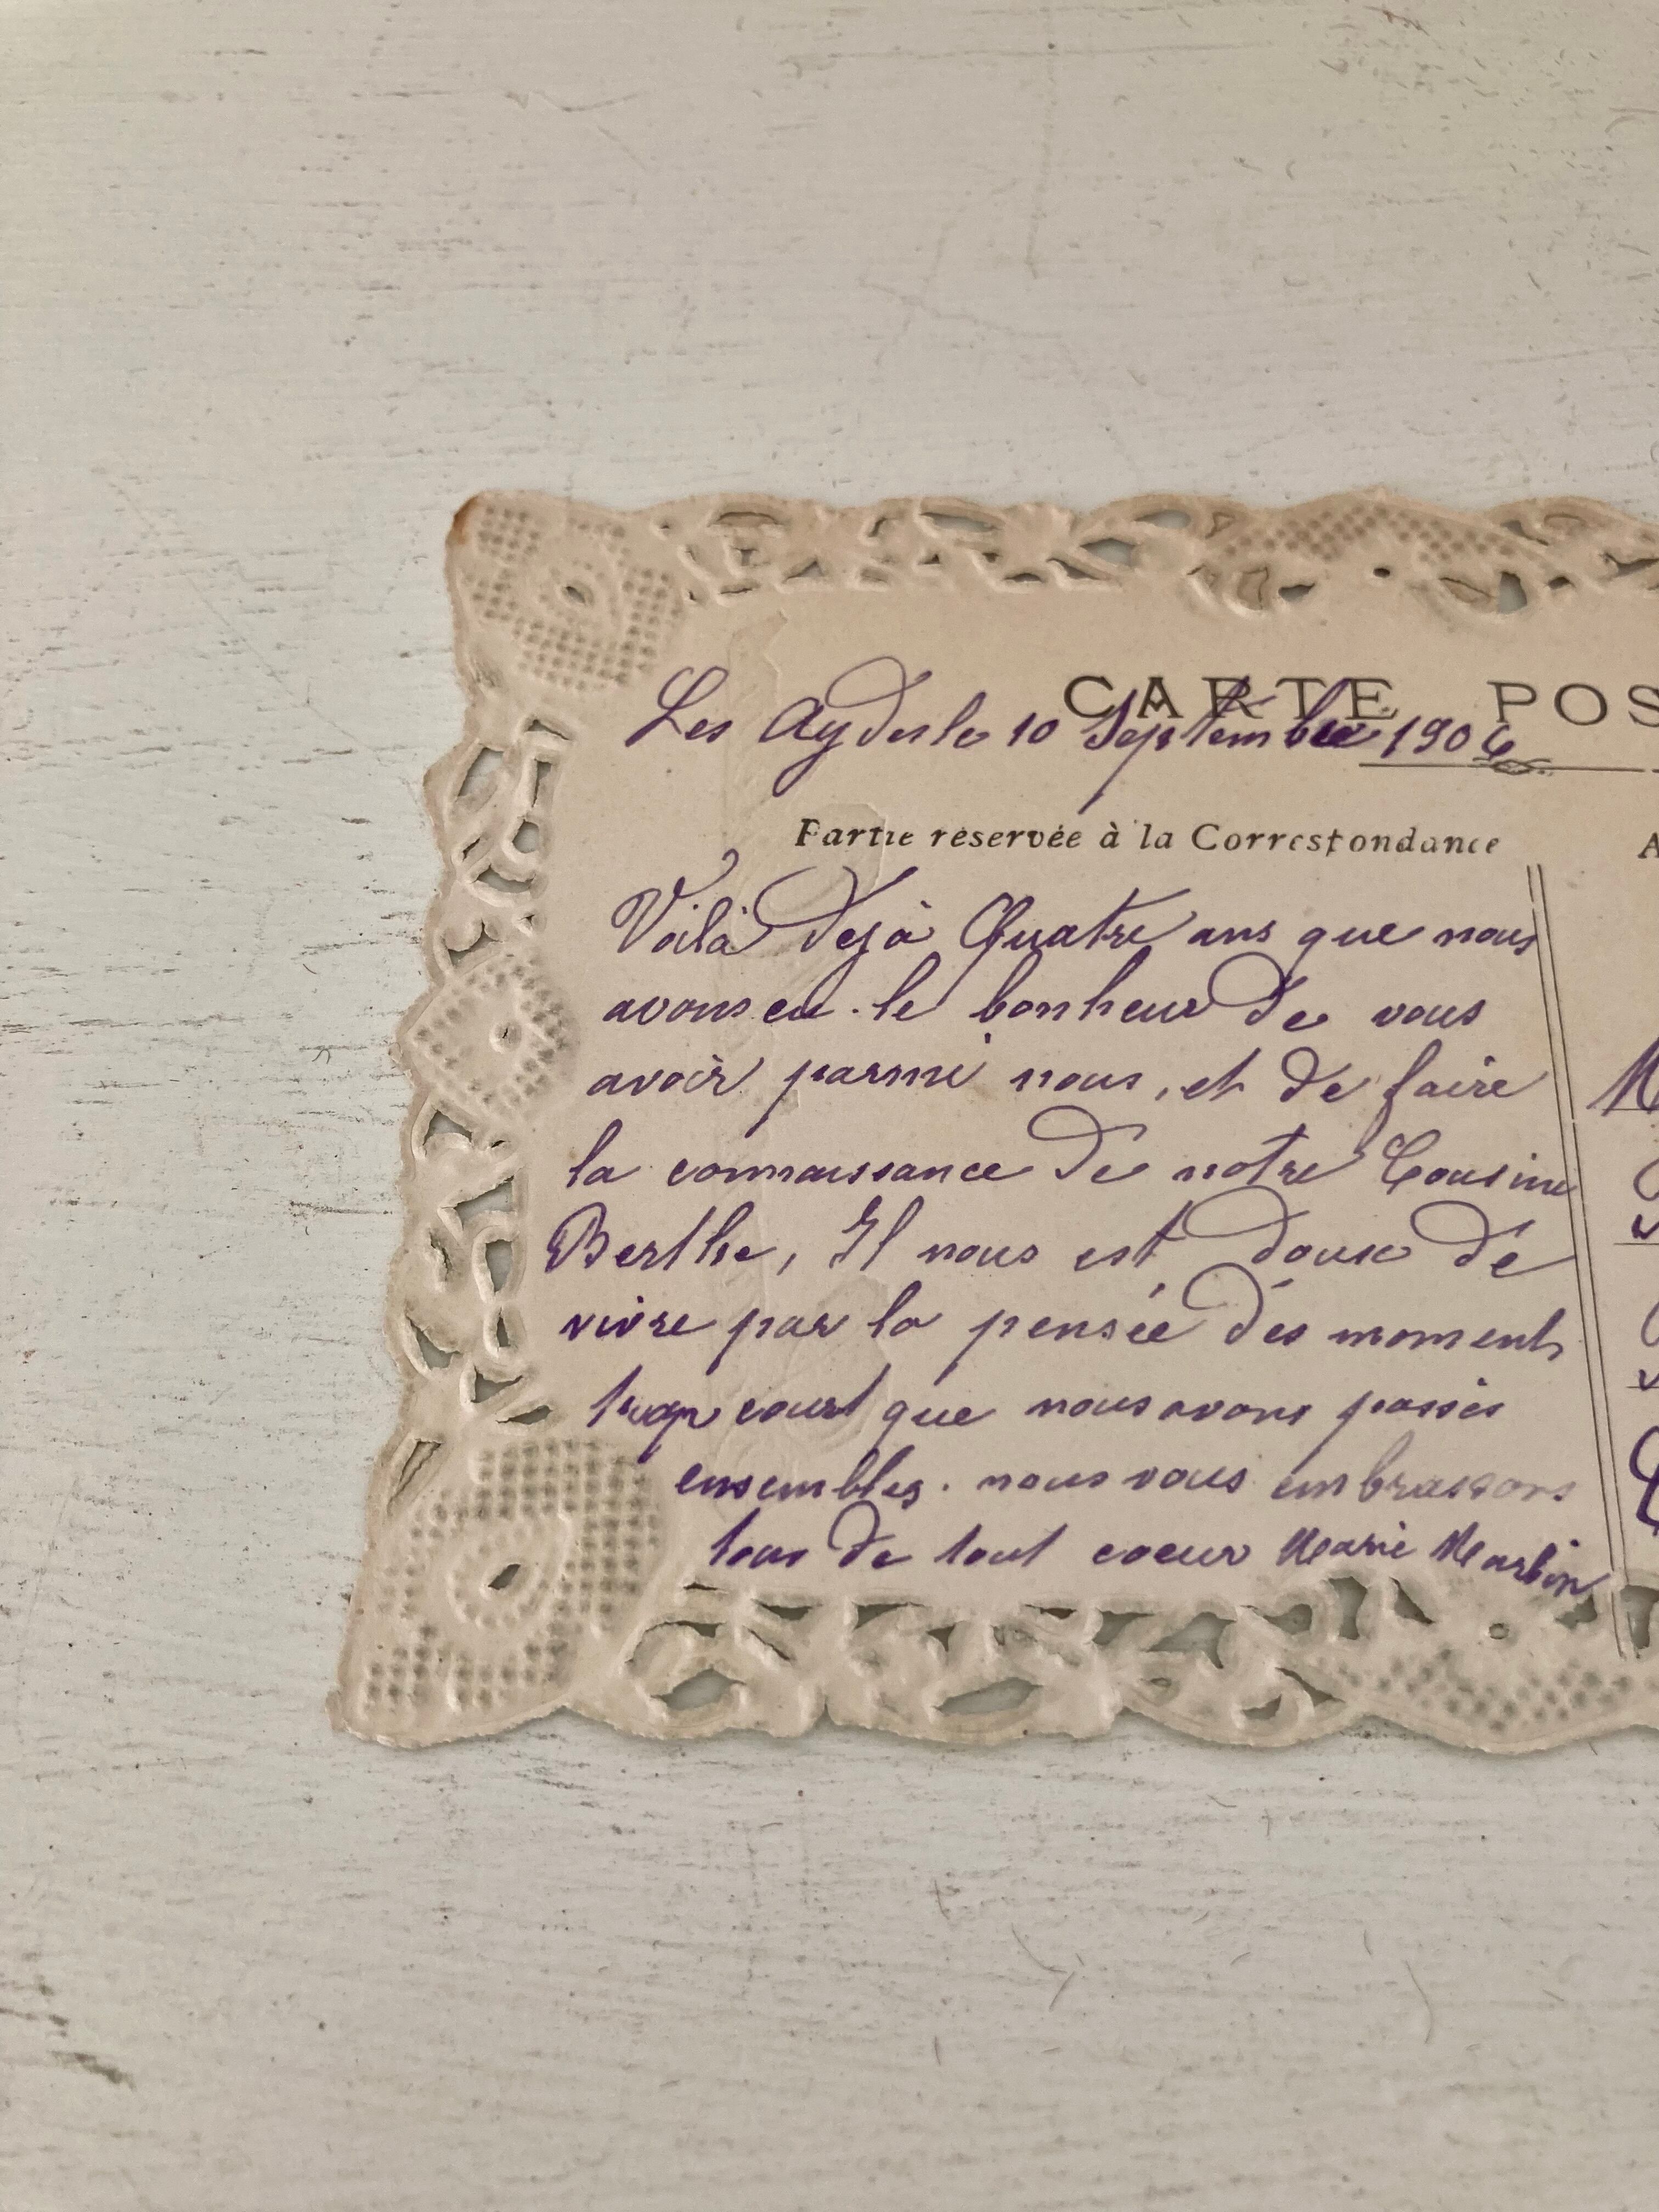 CARTE POS
Les Aydes le 10 Septembre 1906
Partie réservée à la Correspondance
A
Voilà dejà Quatre ans que nous
avons eu le bonheur de vous
avoir parmi nous, et de faire
la connaissance de notre Cousine
Berthe, Il nous est doux de
vivre par la pensée des moments
trop court que nous avons passés
ensembles. nous vous embrassons
tous de tout coeur Marie Martin
M